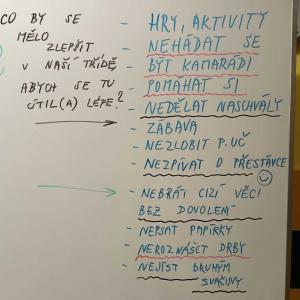 CO BY SE
MĚLO
ZLEPŠIT
V NAŠÍ TŘÍDĚ
ABYCH SE TU
CÍTIL(A) LÉPE?
- HRY, AKTIVITY
- NEHÁDAT SE
- BÝT KAMARÁDI
- POMÁHAT SI
- NEDĚLAT NASCHVÁLY
- ZÁBAVA
- NEZLOBIT P. UČ
- NEZPÍVAT O PŘESTÁVCE
- NEBRAT CIZÍ VĚCI
BEZ DOVOLENÍ
- NEPSAT PAPÍRKY
- NEROZNÁŠET DRBY
- NEJÍST DRUHÝM
SVAČINY